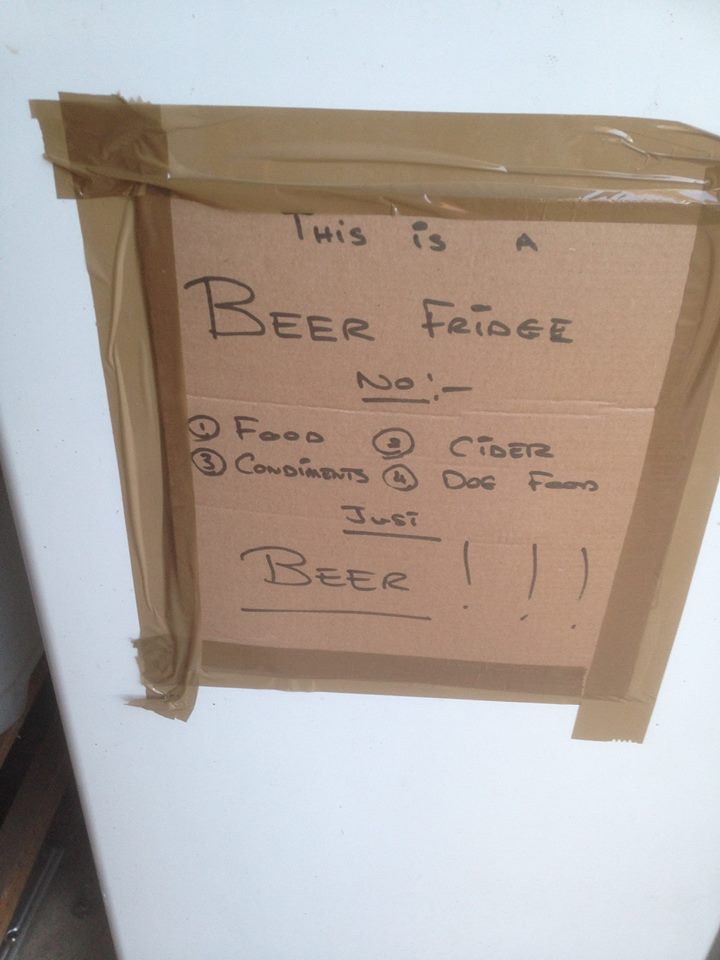 THiS iS A
BEER FRiDGE
NO:-
① FOOD ② CiDER
③ CONDiMENTS ④ DOG FOOD
JUST
BEER !!!